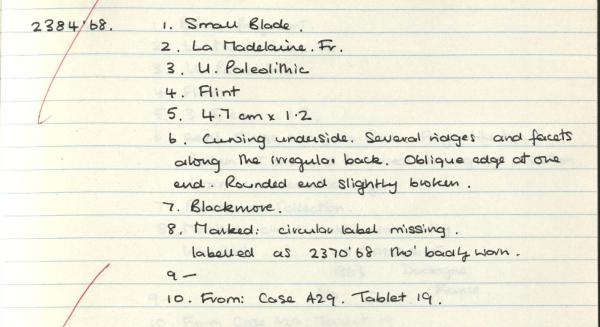 2384'68. 1. Small Blade.
2. La Madelaine. Fr.
3. U. Paleolithic
4. Flint
5. 4.7 cm x 1.2
6. Curving underside. Several ridges and facets
along the irregular back. Oblique edge at one
end. Rounded end slightly broken.
7. Blackmore.
8. Marked: circular label missing.
labelled as 2370'68 tho' badly worn.
9 —
10. From: Case A29. Tablet 19.